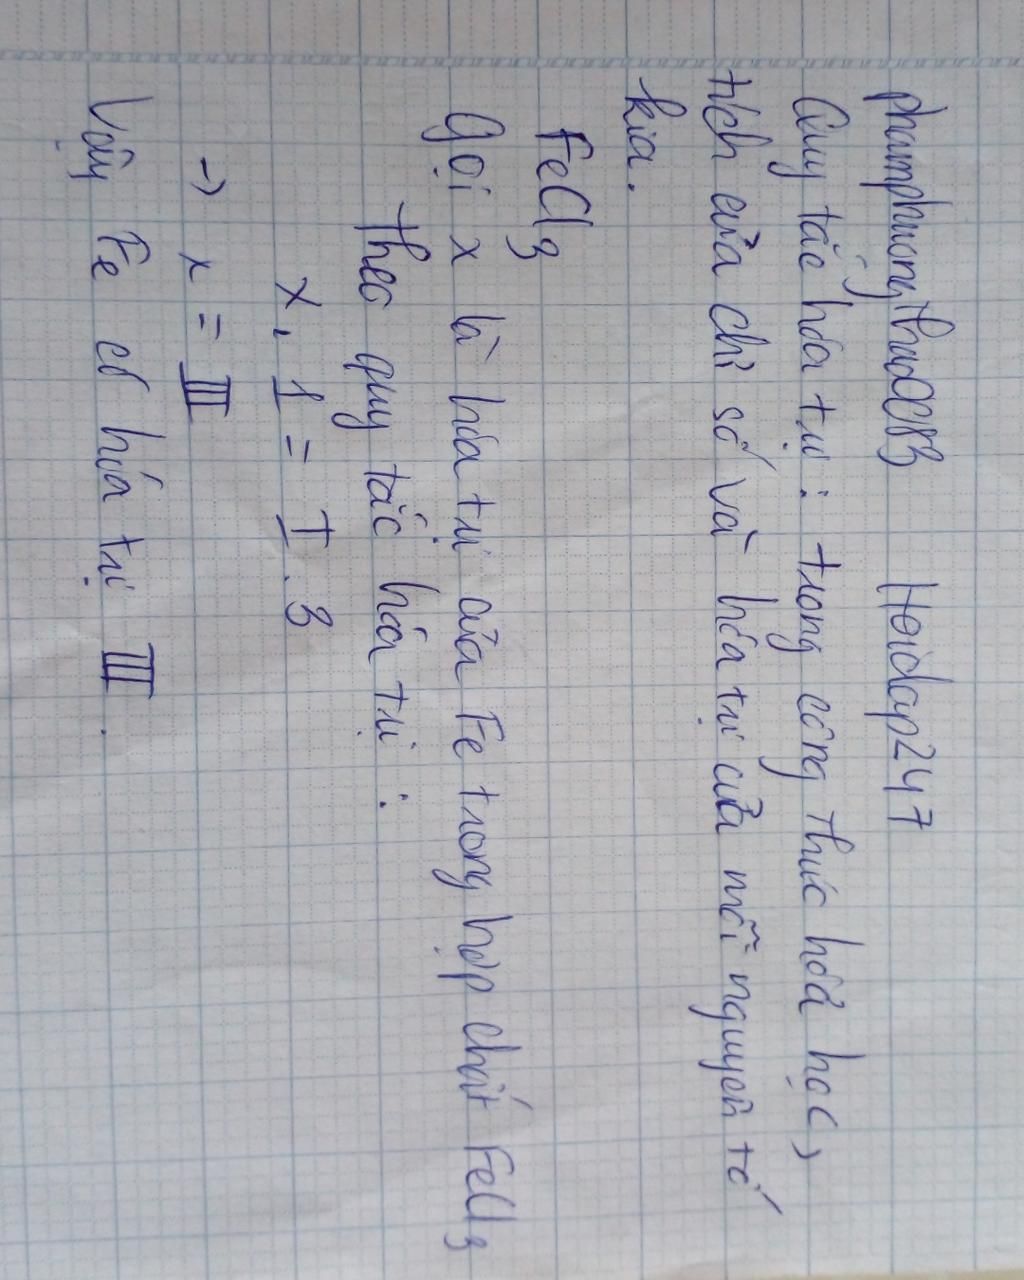 phamphuongthuc0183 Hoidap247
Quy tắc hóa trị : trong công thức hóa học,
tích của chỉ số và hóa trị của mỗi nguyên tố
kia.
FeCl3
Gọi x là hóa trị của Fe trong hợp chất FeCl3
Theo quy tắc hóa trị :
x . 1 = I . 3
→ x = III
Vậy Fe có hóa trị III.